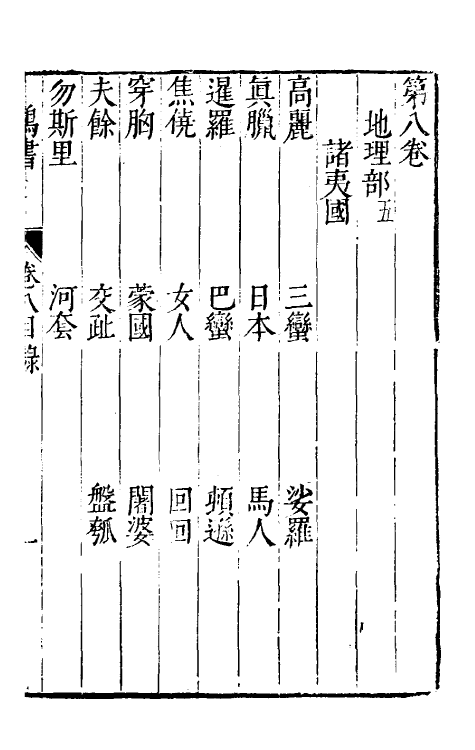 第八卷
地理部五
諸夷國
高麗 三蠻 娑羅
眞臘 日本 馬人
暹羅 巴蠻 頓遜
焦僥 女人 回回
穿胸 蒙國 闍婆
夫餘 交趾 盤瓠
勿斯里 河套
卷八目錄 一